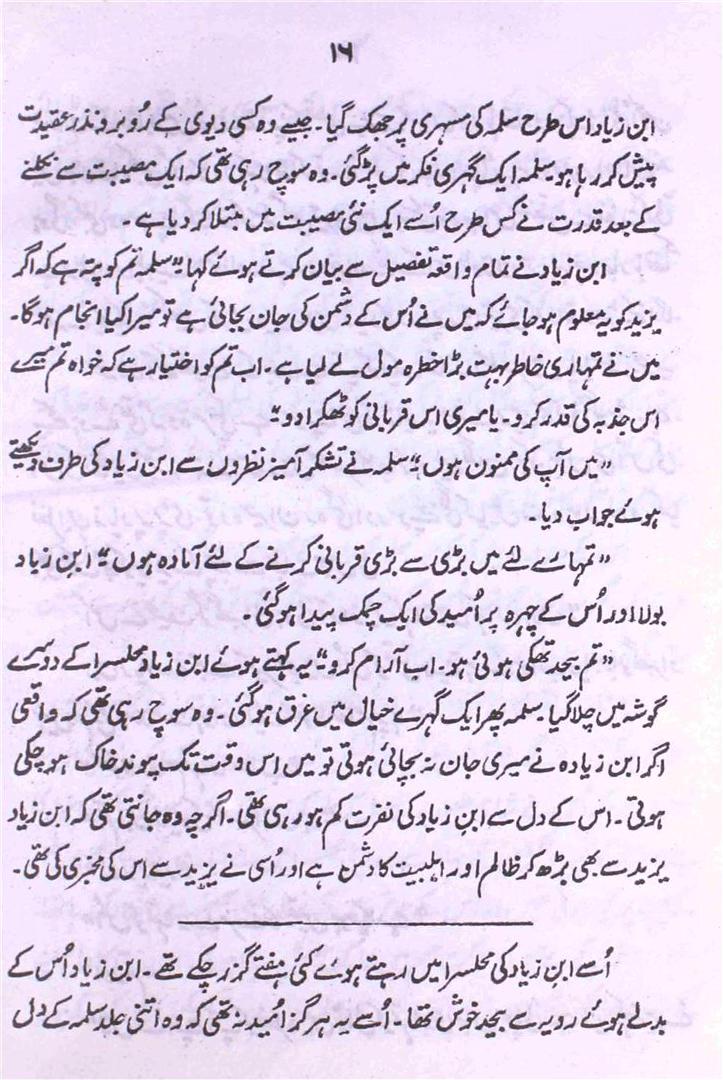 ۱۶
ابن زیاد اس طرح سلمہ کی مسہری پر جھک گیا۔ جیسے وہ کسی دیوی کے رُوبرو نذر عقیدت
پیش کر رہا ہو۔ سلمہ ایک گہری فکر میں پڑ گئی۔ وہ سوچ رہی تھی کہ ایک مصیبت سے نکلنے
کے بعد قدرت نے کس طرح اُسے ایک نئی مصیبت میں مبتلا کر دیا ہے۔
ابن زیاد نے تمام واقعہ تفصیل سے بیان کرتے ہوئے کہا "سلمہ تم کو پتہ ہے کہ اگر
یزید کو یہ معلوم ہو جائے کہ میں نے اُس کے دشمن کی جان بچائی ہے تو میرا کیا انجام ہوگا۔
میں نے تمہاری خاطر بہت بڑا خطرہ مول لے لیا ہے۔ اب تم کو اختیار ہے کہ خواہ تم میرے
اس جذبہ کی قدر کرو۔ یا میری اس قربانی کو ٹھکرا دو"
"میں آپ کی ممنون ہوں" سلمہ نے تشکر آمیز نظروں سے ابن زیاد کی طرف دیکھتے
ہوئے جواب دیا۔
"تمہارے لئے میں بڑی سے بڑی قربانی کرنے کے لئے آمادہ ہوں" ابن زیاد
بولا اور اُس کے چہرہ پر اُمید کی ایک چمک پیدا ہو گئی۔
"تم بیحد تھکی ہوئی ہو۔ اب آرام کرو" یہ کہتے ہوئے ابن زیاد محلسرا کے دوسرے
گوشہ میں چلا گیا۔ سلمہ پھر ایک گہرے خیال میں غرق ہو گئی۔ وہ سوچ رہی تھی کہ واقعی
اگر ابن زیادہ نے میری جان نہ بچائی ہوتی تو میں اس وقت تک پیوند خاک ہو چکی
ہوتی۔ اس کے دل سے ابن زیاد کی نفرت کم ہو رہی تھی۔ اگرچہ وہ جانتی تھی کہ ابن زیاد
یزید سے بھی بڑھ کر ظالم اور اہلبیت کا دشمن ہے اور اُسی نے یزید سے اس کی مخبری کی تھی۔
اُسے ابن زیاد کی محلسرا میں رہتے ہوئے کئی ہفتے گزر چکے تھے۔ ابن زیاد اُس کے
بدلے ہوئے رویہ سے بیحد خوش تھا۔ اُسے یہ ہرگز اُمید نہ تھی کہ وہ اتنی جلد سلمہ کے دل